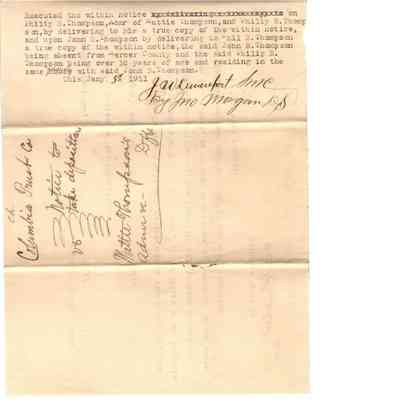 Executed the within notice on
Philly B. Thompson, Admr of Mattie Thompson, and Philly B. Thomp
son, by delivering to him a true copy of the within notice,
and upon John B. Thompson by delivering to Phil B. Thompson
a true copy of the within notice, the said John B. Thompson
being absent from Mercer County and the said Philly B.
Thompson being over 16 years of age and residing in the
same with said John B. Thompson.
This Jany 5th 1911
By Jno Morgan D.S.
Columbia Trust Co
vs Notice to
take deposition
Mattie Thompson's
Admr &c